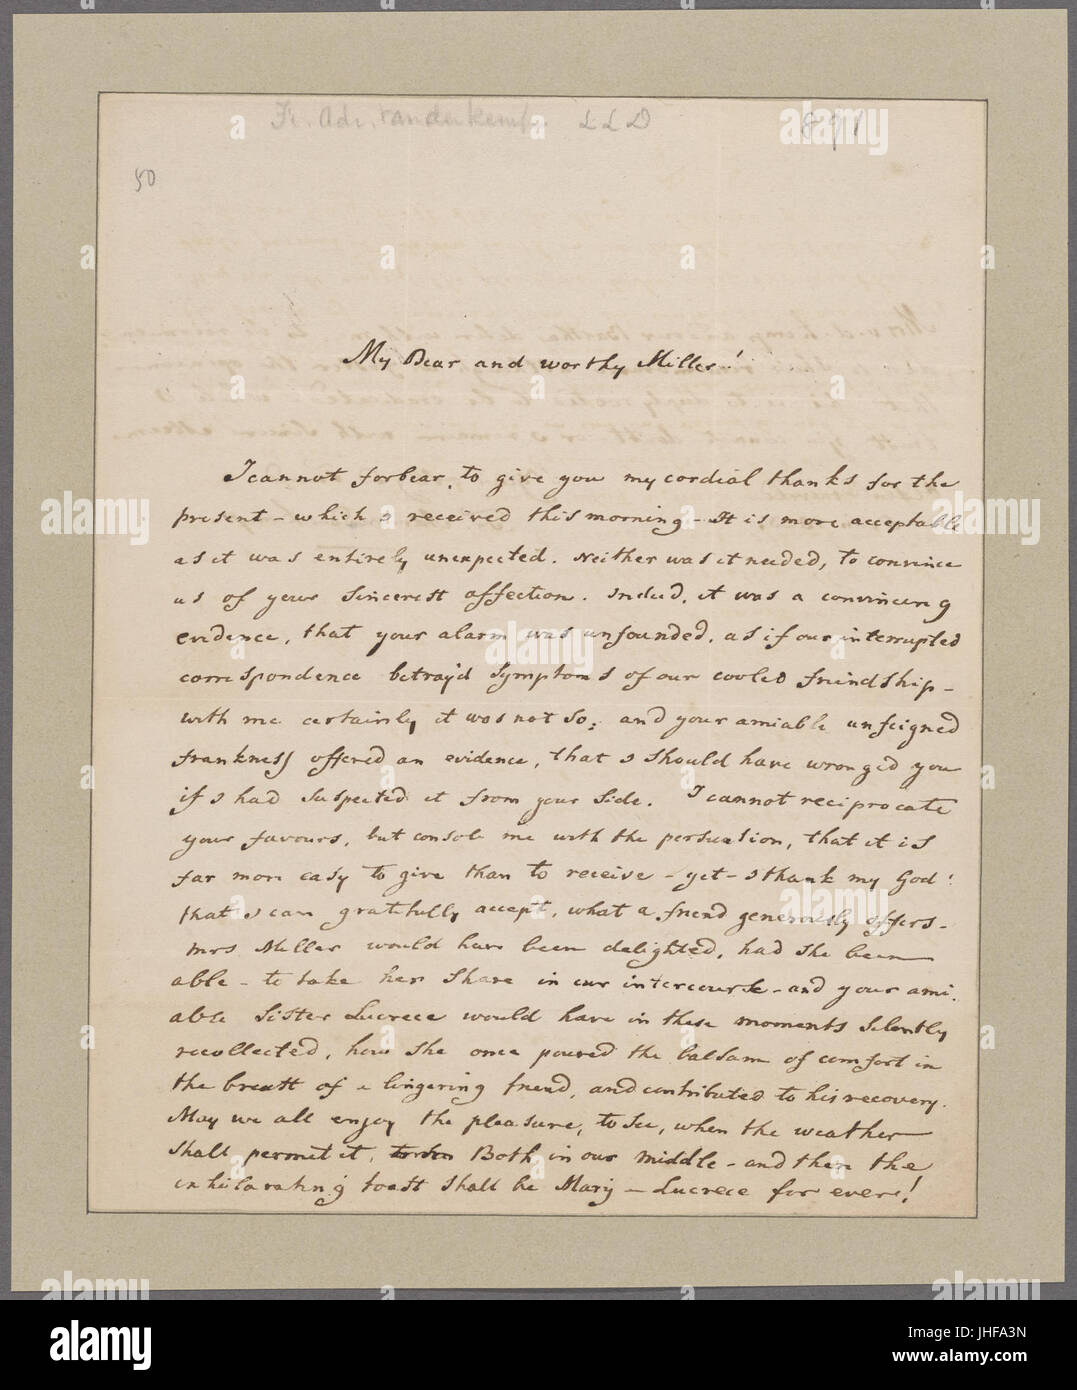 Fr. Adr. vanderkemp. LLD
891
50
My Dear and worthy Miller!
I cannot forbear, to give you my cordial thanks for the
present - which I received this morning - It is more acceptable
as it was entirely unexpected. Neither was it needed, to convince
us of your sincerest affection. Indeed, it was a convincing
evidence, that your alarm was unfounded, as if our interrupted
correspondence betray'd symptoms of our cooled friendship -
with me certainly it was not so; and your amiable unfeigned
frankness offered an evidence, that I should have wronged you
if I had suspected it from your side. I cannot reciprocate
your favours, but console me with the persuasion, that it is
far more easy to give than to receive - yet - I thank my God!
that I can gratefully accept, what a friend generously offers -
Mrs Miller would have been delighted, had she been
able - to take her share in our intercourse - and your ami-
able Sister Lucrece would have in these moments silently
recollected, how she once poured the balsam of comfort in
the breast of a lingering friend, and contributed to his recovery.
May we all enjoy the pleasure, to see, when the weather
shall permit it, Both in our middle - and then the
inhilarating toast shall be Mary - Lucrece for ever!
alamy
Image ID: JHFA3N
www.alamy.com